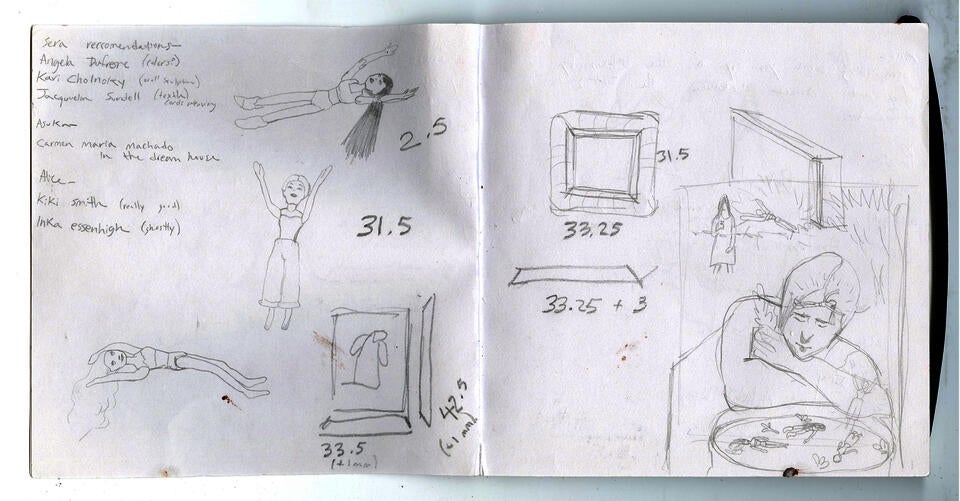 Sera reccomendations—
Angela Dufresne (colors?)
Kari Cholnoky (wall sculpture)
Jacqueline Surdell (textile)
cards weaving
Asuka—
Carmen maria machado
In the dream house
Alice—
Kiki smith (really good)
Inka essenhigh (ghostly)
2.5
31.5
33.5
(+1mm)
42.5
(+1mm)
31.5
33.25
33.25 + 3